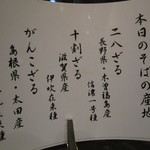 本日のそばの産地
二八ざる
長野県・木曽福島産
信濃一号種
十割ざる
滋賀県産
伊吹在来種
がんこざる
島根県・太田産